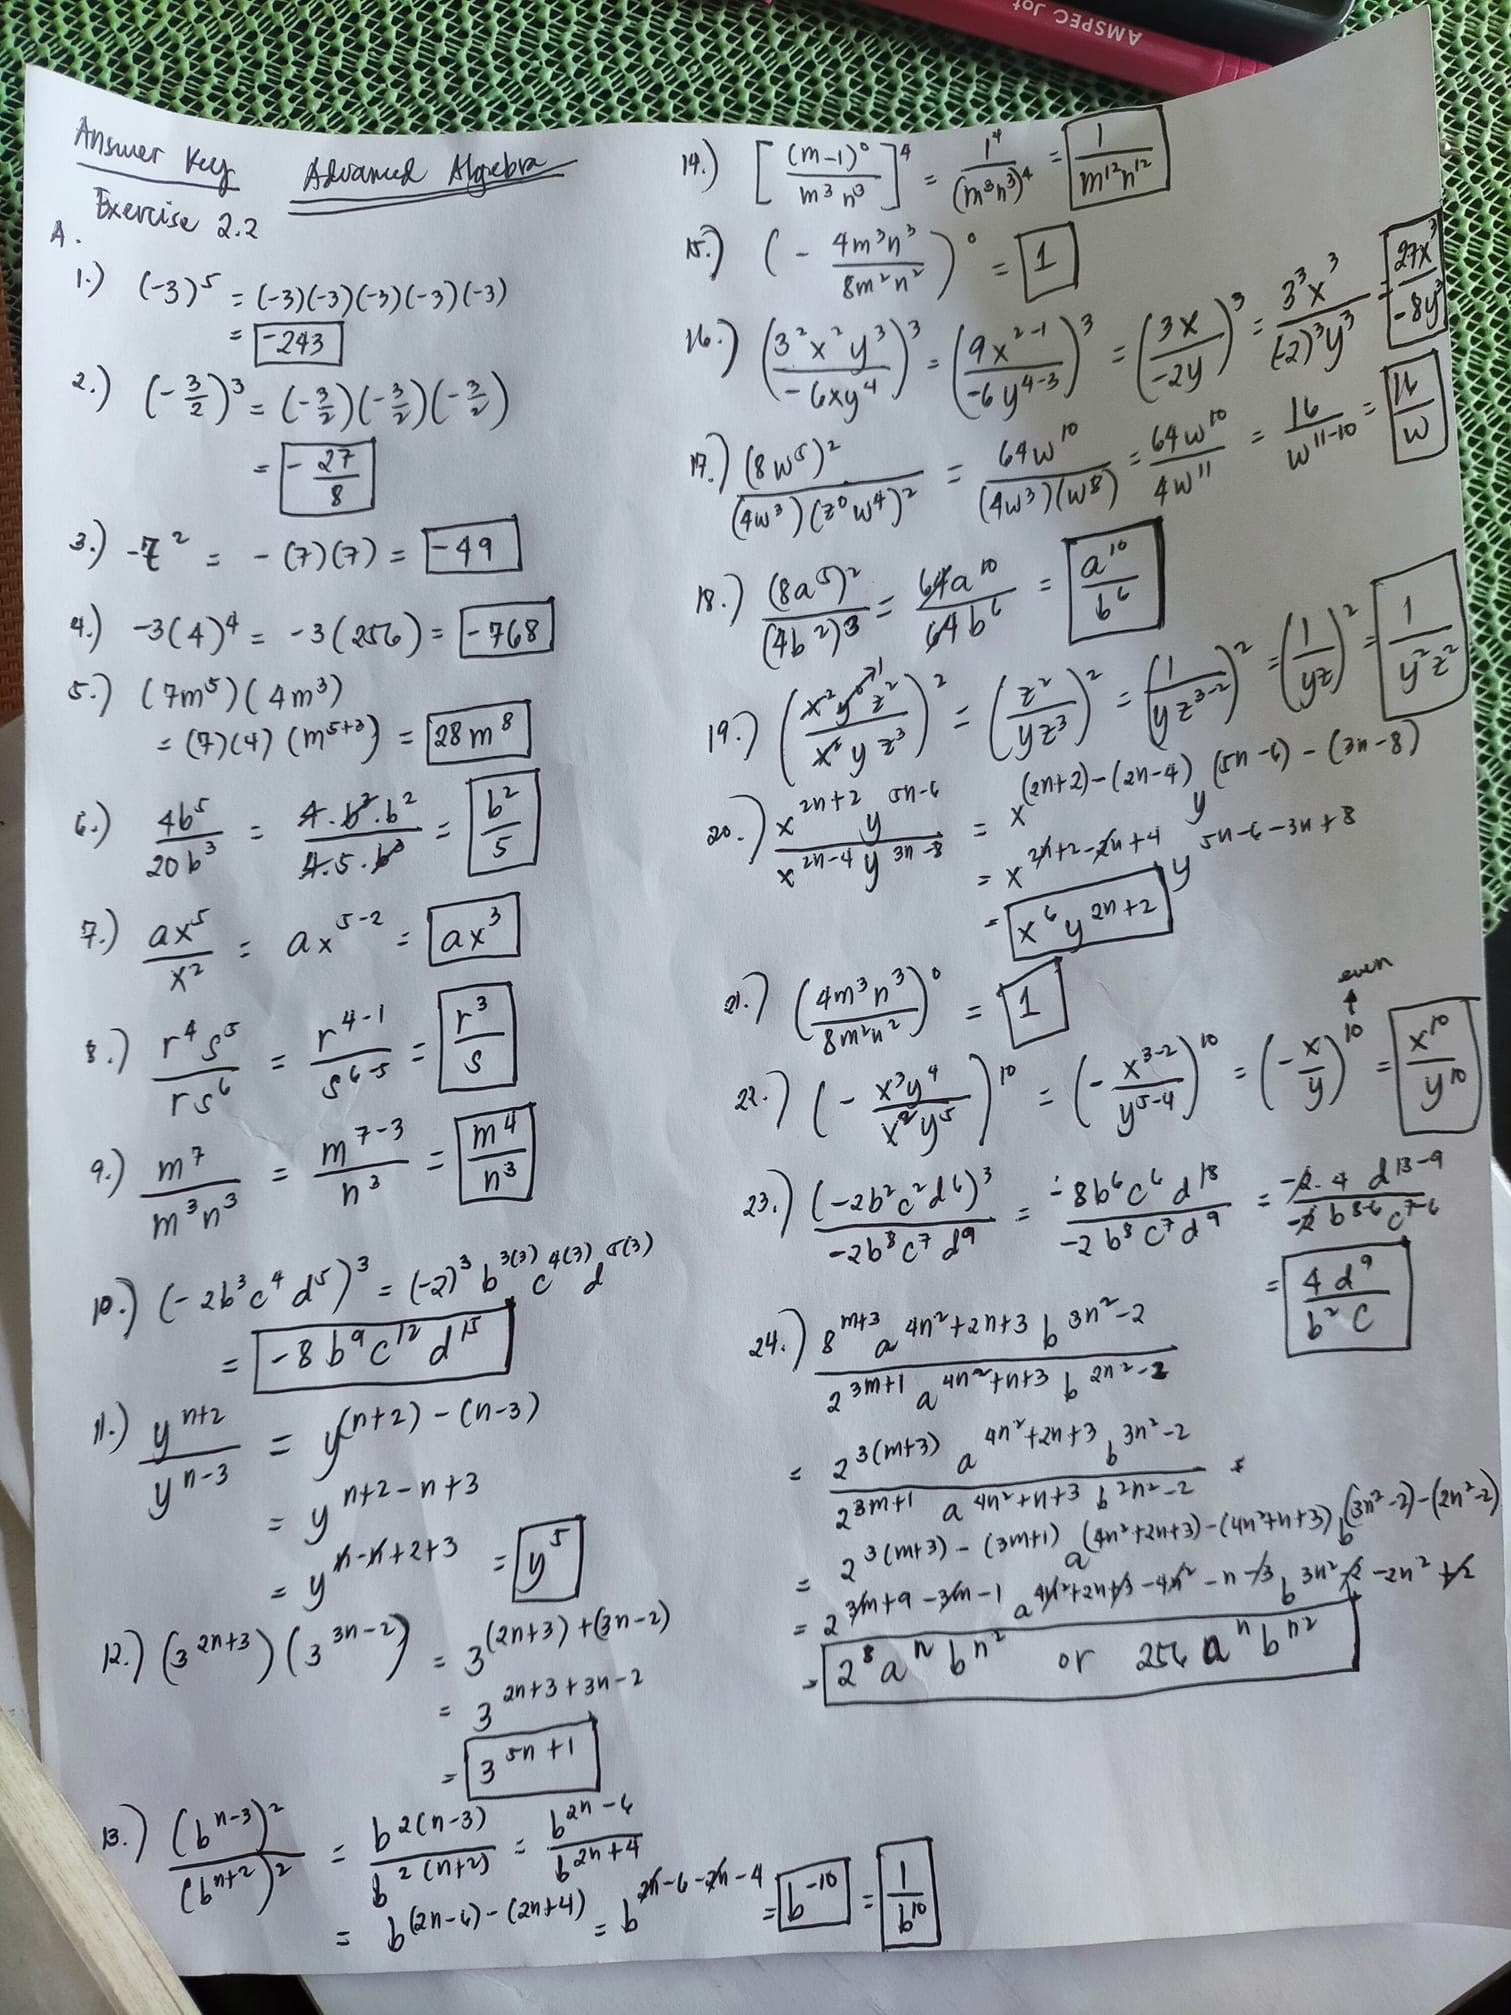 AMSPEC Jot
Answer Key Advanced Algebra
Exercise 2.2
A.
1.) (-3)^5 = (-3)(-3)(-3)(-3)(-3)
= -243
2.) (-3/2)^3 = (-3/2)(-3/2)(-3/2)
= -27/8
3.) -7^2 = -(7)(7) = -49
4.) -3(4)^4 = -3(256) = -768
5.) (7m^5)(4m^3)
= (7)(4)(m^(5+3)) = 28m^8
6.) 4b^5/20b^3 = 4·b^3·b^2/4·5·b^3 = b^2/5
7.) ax^5/x^2 = ax^(5-2) = ax^3
8.) r^4 s^5/rs^6 = r^(4-1)/s^(6-5) = r^3/s
9.) m^7/m^3n^3 = m^(7-3)/n^3 = m^4/n^3
10.) (-2b^3c^4d^5)^3 = (-2)^3 b^3(3) c^4(3) d^5(3)
= -8b^9c^12d^15
11.) y^(n+2)/y^(n-3) = y^((n+2)-(n-3))
= y^(n+2-n+3)
= y^(n-n+2+3) = y^5
12.) (3^(2n+3))(3^(3n-2)) = 3^((2n+3)+(3n-2))
= 3^(2n+3+3n-2)
= 3^(5n+1)
13.) (b^(n-3))^2/(b^(n+2))^2 = b^(2(n-3))/b^(2(n+2)) = b^(2n-6)/b^(2n+4)
= b^((2n-6)-(2n+4)) = b^(2n-6-2n-4) = b^-10 = 1/b^10
14.) [(m-1)^0/m^3n^3]^4 = 1^4/(m^3n^3)^4 = 1/m^12n^12
15.) (-4m^3n^3/8m^2n^2)^0 = 1
16.) (3^2x^2y^3/-6xy^4)^3 = (9x^(2-1)/-6y^(4-3))^3 = (3x/-2y)^3 = 3^3x^3/(-2)^3y^3 = 27x^3/-8y^3
17.) (8w^5)^2/(4w^3)(z^0w^4)^2 = 64w^10/(4w^3)(w^8) = 64w^10/4w^11 = 16/w^(11-10) = 16/w
18.) (8a^5)^2/(4b^2)^3 = 64a^10/64b^6 = a^10/b^6
19.) (x^2y^0z^2/x^2yz^3)^2 = (z^2/yz^3)^2 = (1/yz^(3-2))^2 = (1/yz)^2 = 1/y^2z^2
20.) x^(2n+2)y^(5n-6)/x^(2n-4)y^(3n-8) = x^((2n+2)-(2n-4)) y^((5n-6)-(3n-8))
= x^(2n+2-2n+4) y^(5n-6-3n+8)
= x^6y^(2n+2)
21.) (4m^3n^3/8m^2n^2)^0 = 1
even
22.) (-x^3y^4/x^2y^5)^10 = (-x^(3-2)/y^(5-4))^10 = (-x/y)^10 = x^10/y^10
23.) (-2b^2c^2d^6)^3/-2b^8c^7d^9 = -8b^6c^6d^18/-2b^8c^7d^9 = -2·4 d^(18-9)/-2 b^(8-6) c^(7-6)
= 4d^9/b^2c
24.) 8^(m+3) a^(4n^2+2n+3) b^(3n^2-2)/2^(3m+1) a^(4n^2+n+3) b^(2n^2-2)
= 2^(3(m+3)) a^(4n^2+2n+3) b^(3n^2-2)/2^(3m+1) a^(4n^2+n+3) b^(2n^2-2)
= 2^(3(m+3)-(3m+1)) a^((4n^2+2n+3)-(4n^2+n+3)) b^((3n^2-2)-(2n^2-2))
= 2^(3m+9-3m-1) a^(4n^2+2n+3-4n^2-n-3) b^(3n^2-2-2n^2+2)
= 2^8 a^n b^n^2 or 256 a^n b^n^2